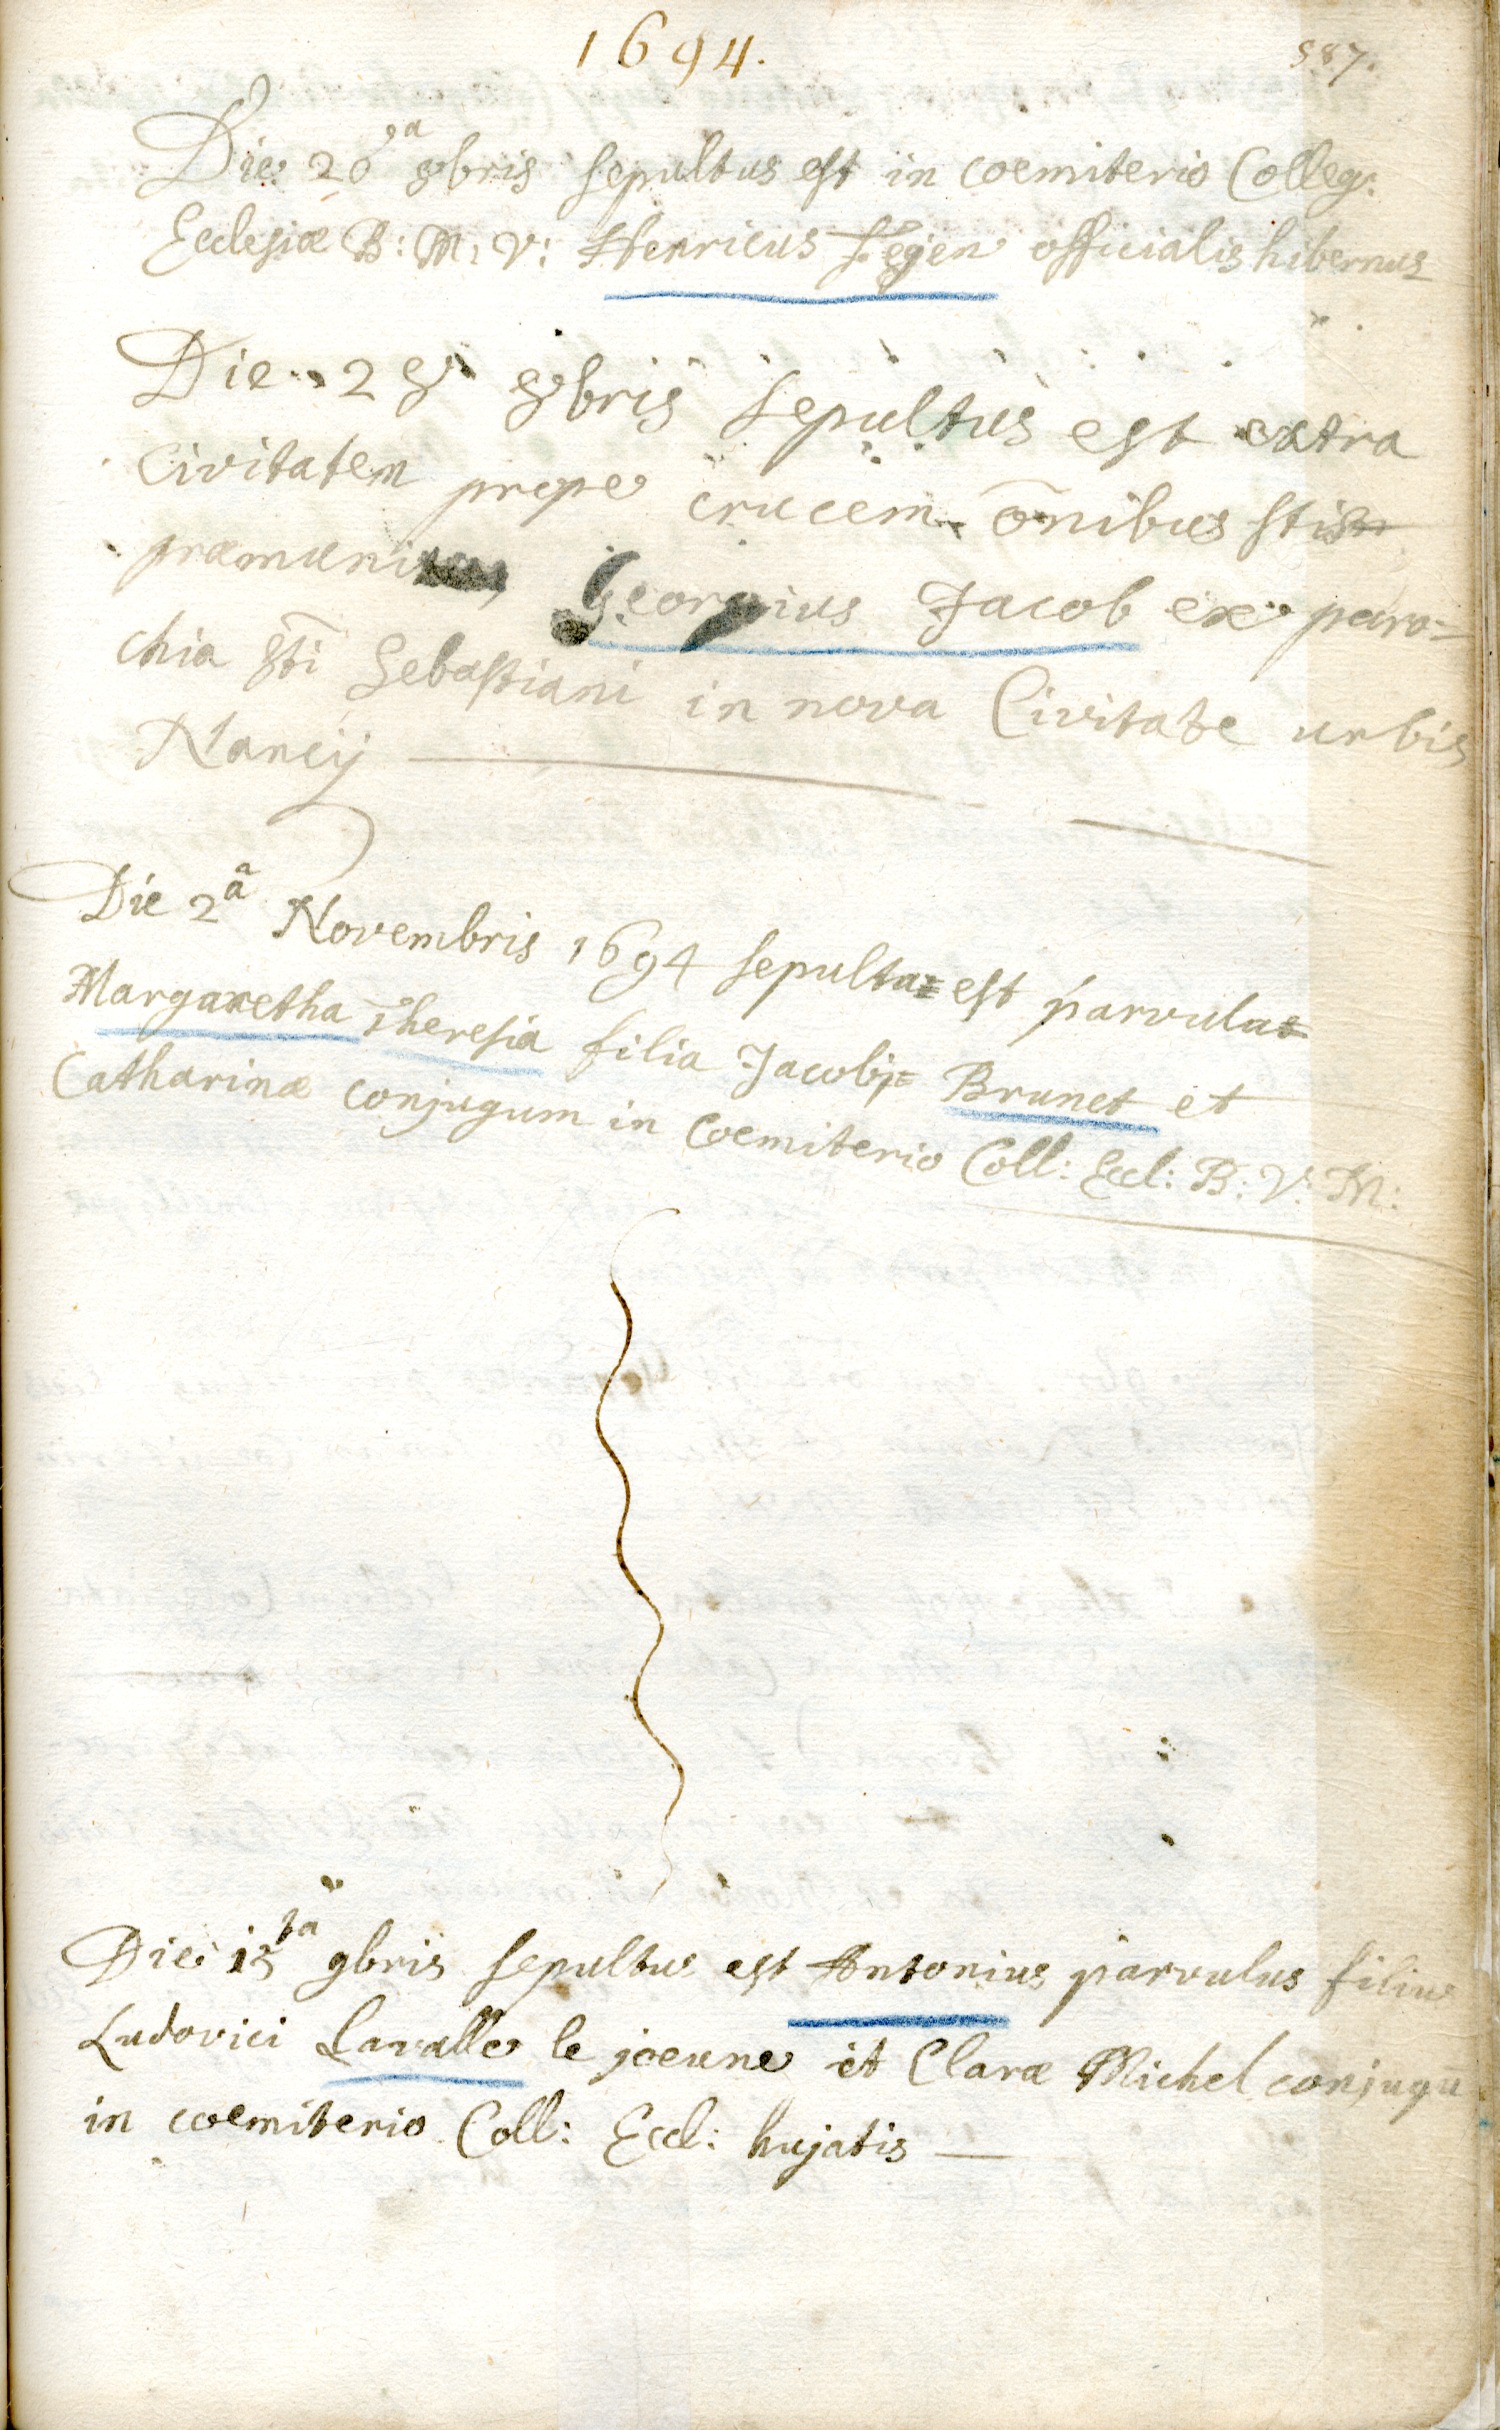 1694.
587.
Die 26ta 8bris sepultus est in coemiterio Colleg:
Ecclesiæ B: M: V: Henricus Fegen officialis hibernus
Die 28 8bris sepultus est extra
Civitatem prope crucem ōnibus stis
præmunitus Georgius Jacob ex paro=
chia sti Sebastiani in nova Civitate urbis
Nancij
Die 2a Novembris 1694 sepulta est parvula
Margaretha Theresia filia Jacobi Brunet et
Catharinæ conjugum in Coemiterio Coll: Eccl: B: V: M:
Die 15ta 9bris sepultus est Antonius parvulus filius
Ludovici Lavalle le joeune et Claræ Michel conjugu
in coemiterio Coll: Eccl: hujatis